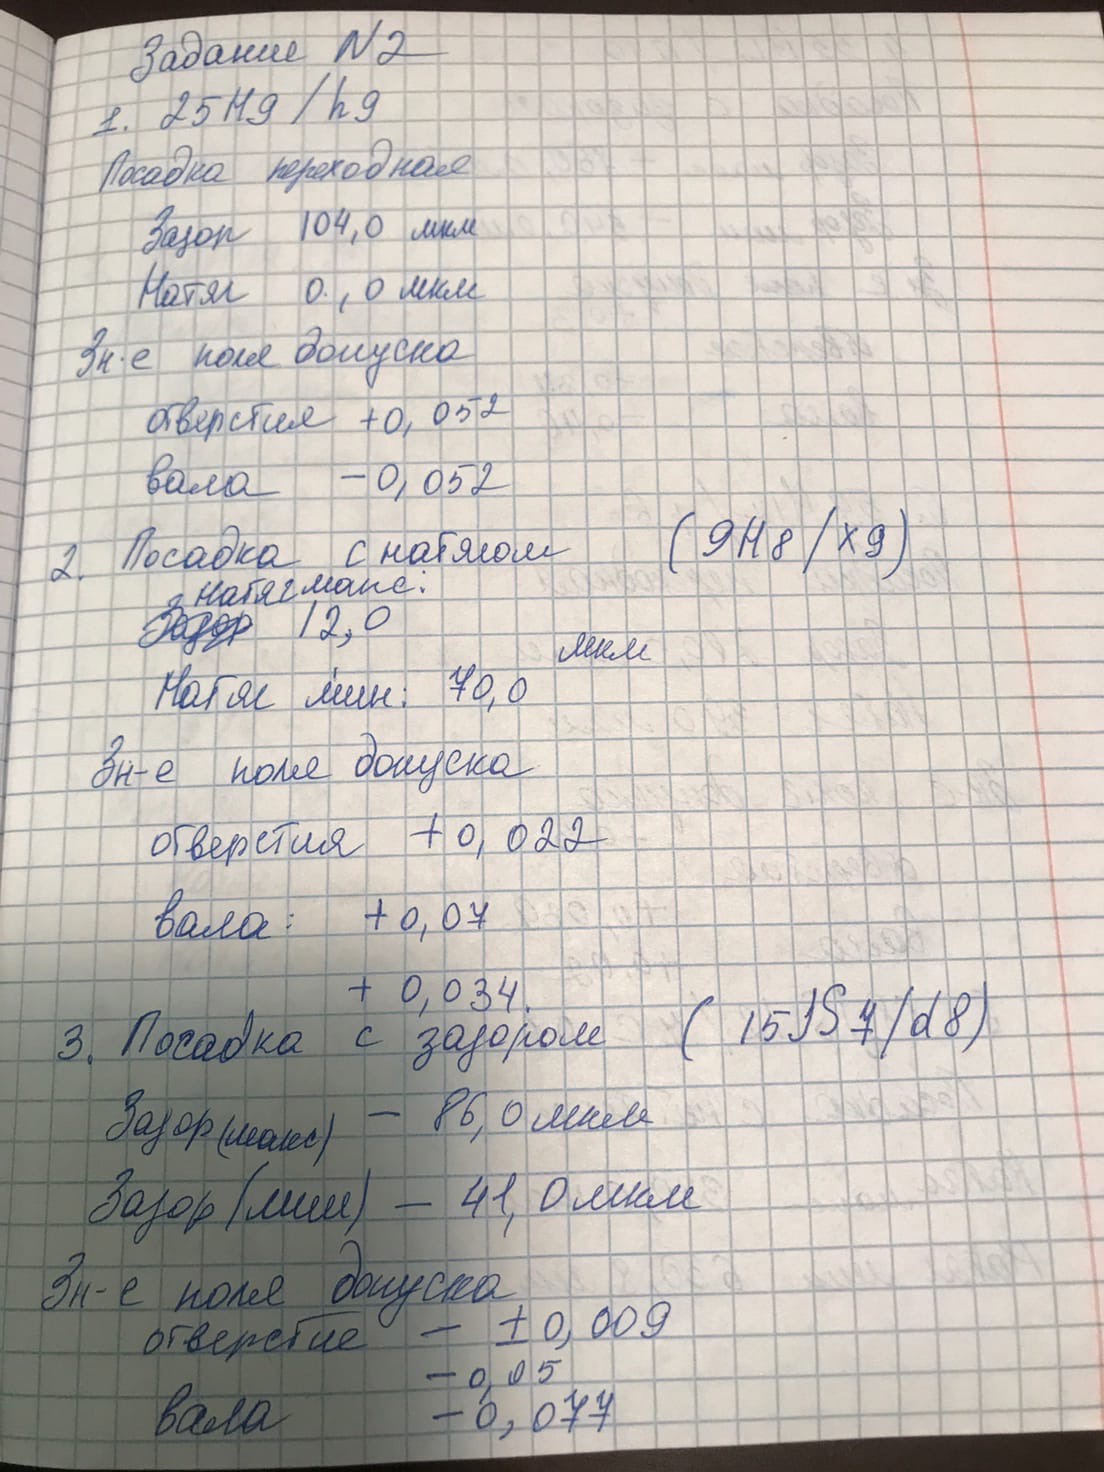 Задание N2
1. 25H9/h9
Посадка переходная
Зазор 104,0 мкм
Натяг 0,0 мкм
Зн-е поля допуска
отверстия +0,052
вала -0,052
2. Посадка с натягом (9H8/x9)
натяг макс:
12,0
мкм
Натяг мин: 70,0
Зн-е поля допуска
отверстия +0,022
вала: +0,07
+0,034.
3. Посадка с зазором (15JS7/d8)
Зазор (макс) - 86,0 мкм
Зазор (мин) - 41,0 мкм
Зн-е поля допуска
отверстие - ±0,009
-0,05
вала -0,077